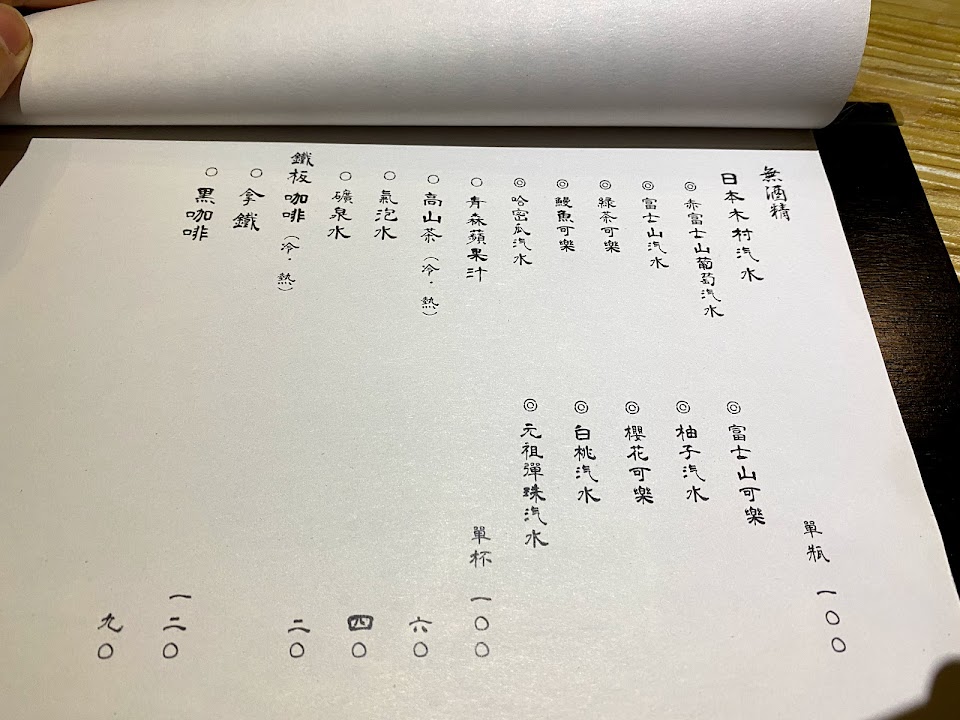 無酒精
日本木村汽水
單瓶 一〇〇
◎赤富士山葡萄汽水
◎富士山可樂
◎富士山汽水
◎柚子汽水
◎綠茶可樂
◎櫻花可樂
◎鰻魚可樂
◎白桃汽水
◎哈密瓜汽水
◎元祖彈珠汽水
○青森蘋果汁 單杯 一〇〇
○高山茶(冷·熱) 六〇
○氣泡水 四〇
○礦泉水 二〇
鐵板咖啡(冷·熱)
○拿鐵 一二〇
○黑咖啡 九〇